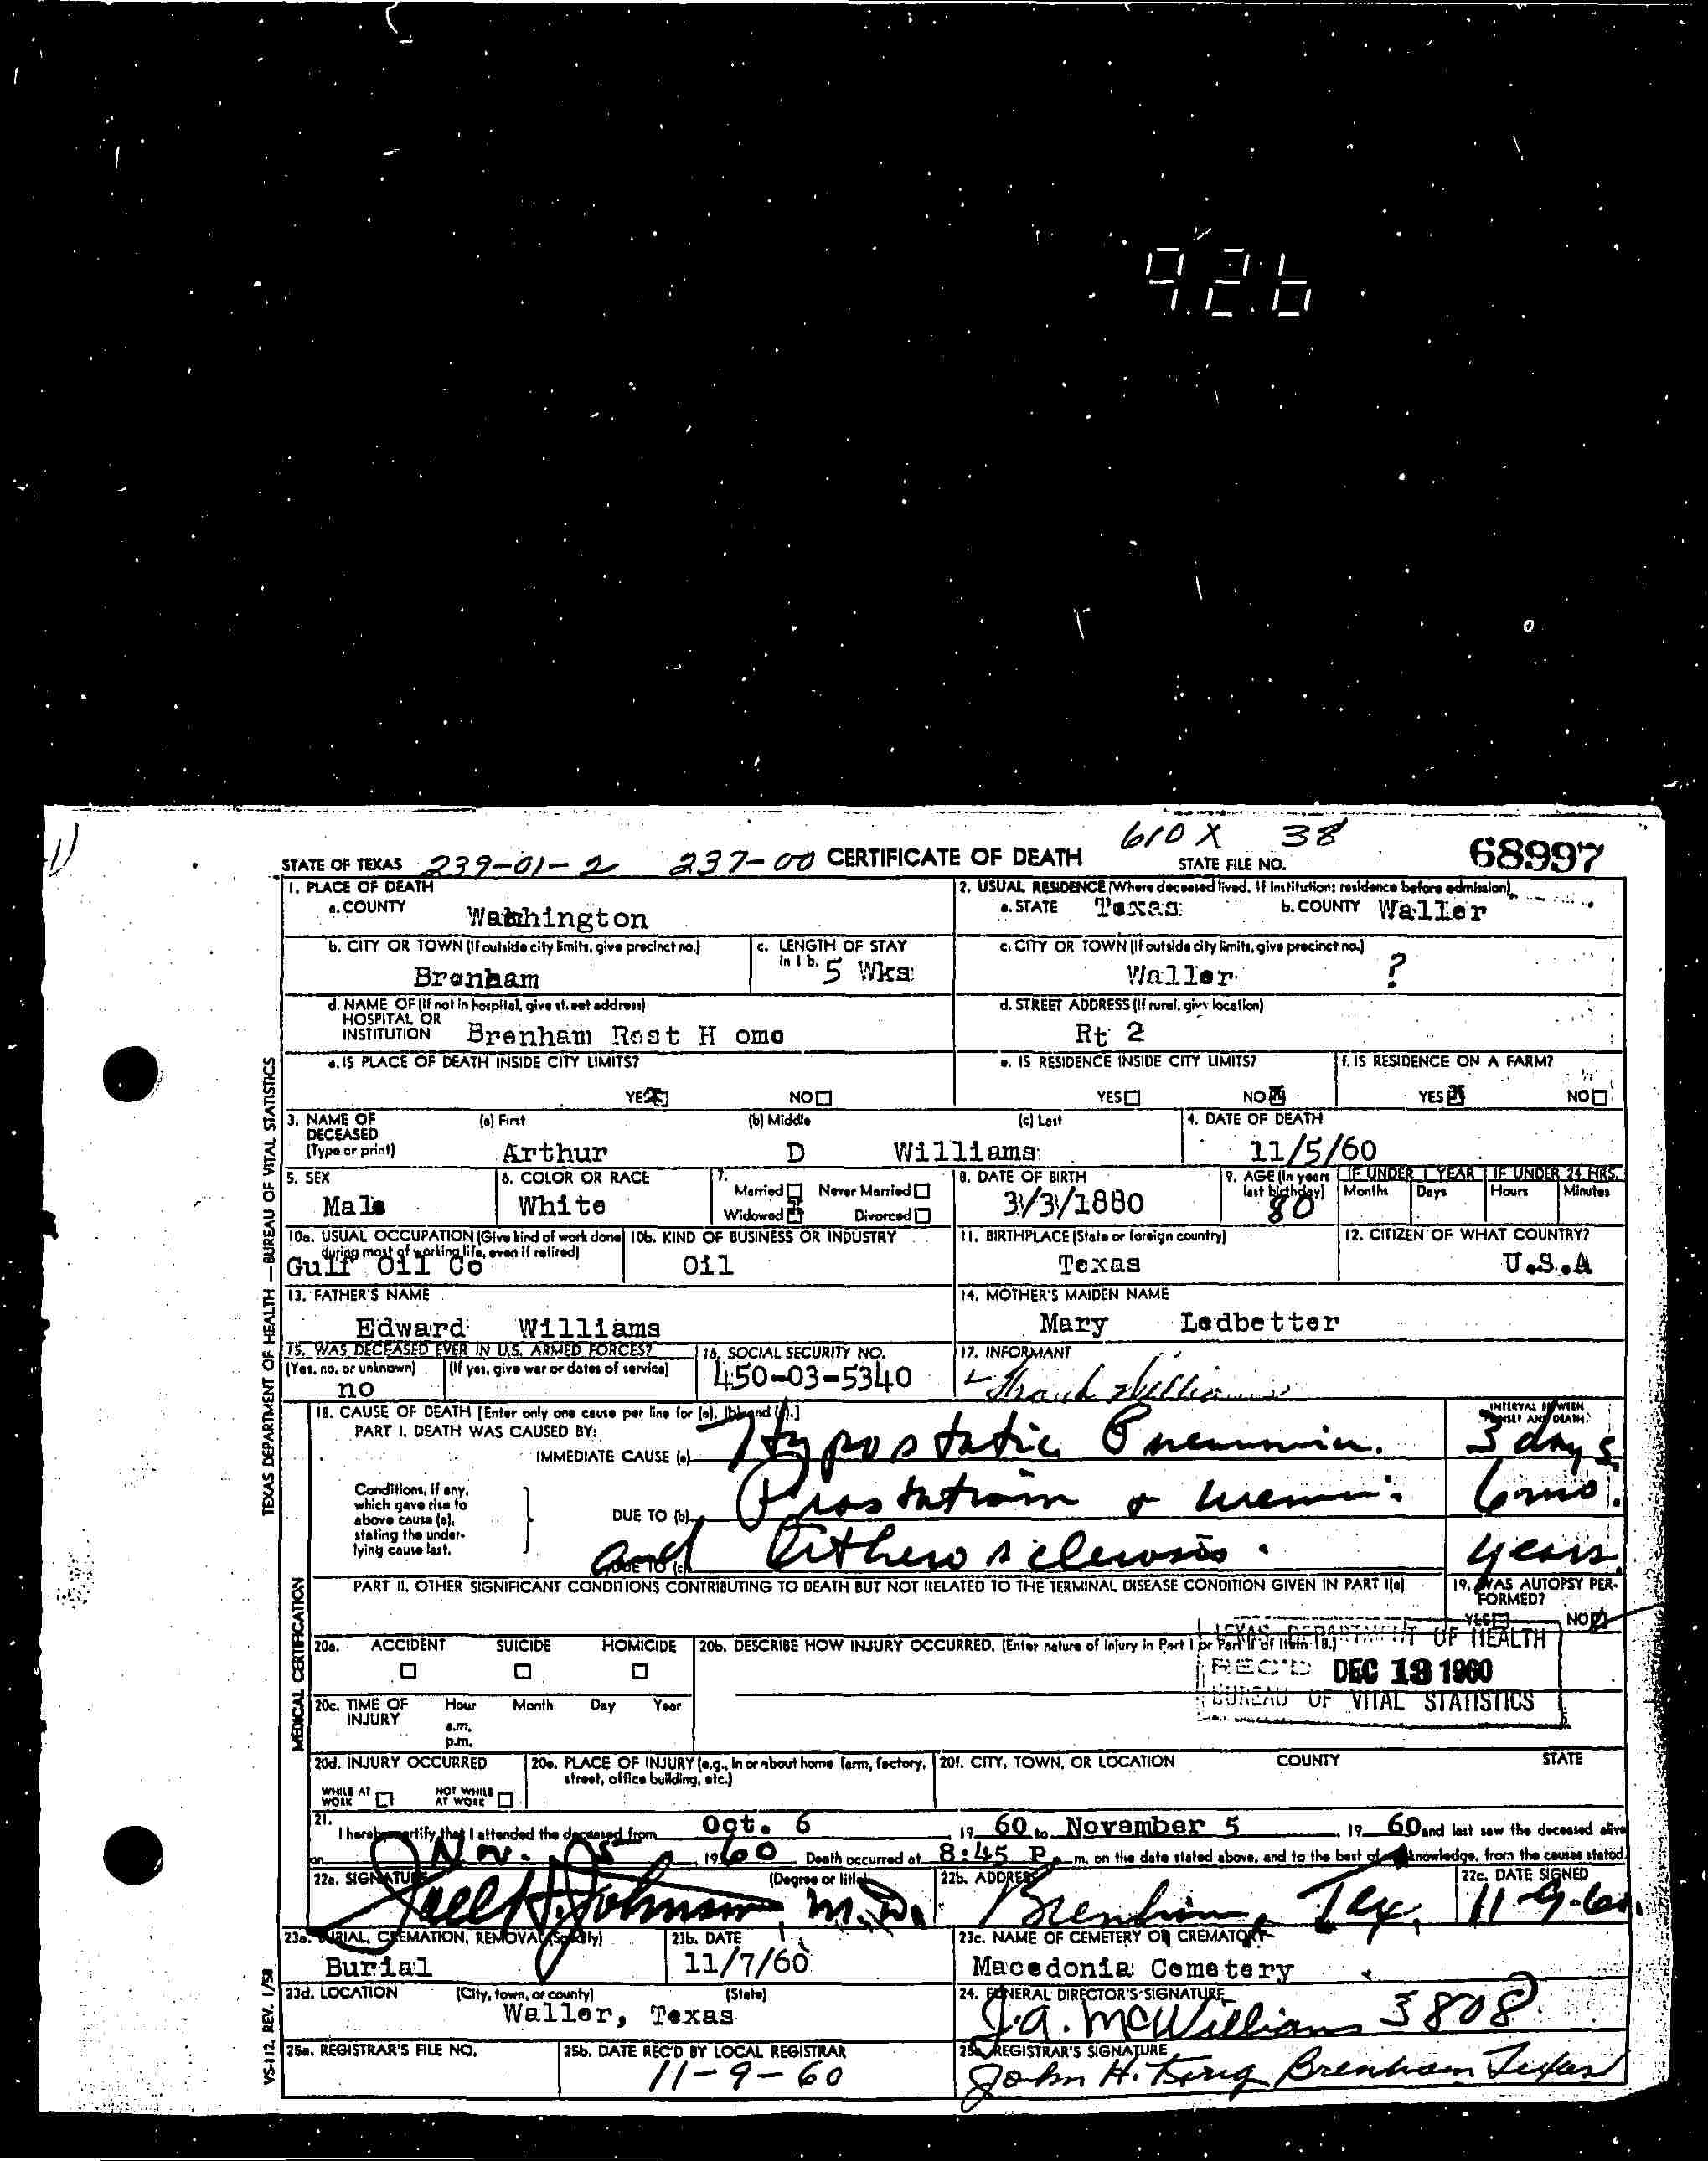 9.2.6
610 X 38
STATE OF TEXAS 239-01-2 237-00 CERTIFICATE OF DEATH STATE FILE NO. 68997
1. PLACE OF DEATH
a. COUNTY Washington
2. USUAL RESIDENCE (Where deceased lived. If institution: residence before admission)
a. STATE Texas b. COUNTY Waller
b. CITY OR TOWN (If outside city limits, give precinct no.) Brenham
c. LENGTH OF STAY in 1 b. 5 Wks
c. CITY OR TOWN (If outside city limits, give precinct no.) Waller ?
d. NAME OF (If not in hospital, give street address) HOSPITAL OR INSTITUTION Brenham Rest H ome
d. STREET ADDRESS (If rural, give location) Rt 2
e. IS PLACE OF DEATH INSIDE CITY LIMITS? YES NO
e. IS RESIDENCE INSIDE CITY LIMITS? YES NO
f. IS RESIDENCE ON A FARM? YES NO
3. NAME OF DECEASED (Type or print) (a) First Arthur (b) Middle D (c) Last Williams
4. DATE OF DEATH 11/5/60
5. SEX Male
6. COLOR OR RACE White
7. Married Never Married Widowed Divorced
8. DATE OF BIRTH 3/3/1880
9. AGE (In years last birthday) 80 IF UNDER 1 YEAR Months Days IF UNDER 24 HRS. Hours Minutes
10a. USUAL OCCUPATION (Give kind of work done during most of working life, even if retired) Gulf Oil Co
10b. KIND OF BUSINESS OR INDUSTRY Oil
11. BIRTHPLACE (State or foreign country) Texas
12. CITIZEN OF WHAT COUNTRY? U.S.A
13. FATHER'S NAME Edward Williams
14. MOTHER'S MAIDEN NAME Mary Ledbetter
15. WAS DECEASED EVER IN U.S. ARMED FORCES? (Yes, no, or unknown) no (If yes, give war or dates of service)
16. SOCIAL SECURITY NO. 450-03-5340
17. INFORMANT Williams
18. CAUSE OF DEATH [Enter only one cause per line for (a), (b) and (c).] INTERVAL BETWEEN ONSET AND DEATH
PART I. DEATH WAS CAUSED BY:
IMMEDIATE CAUSE (a) Hypostatic Pneumonia. 3 days
Conditions, if any, which gave rise to above cause (a), stating the underlying cause last.
DUE TO (b) 6 mo.
DUE TO (c) and Atherosclerosis. years
PART II. OTHER SIGNIFICANT CONDITIONS CONTRIBUTING TO DEATH BUT NOT RELATED TO THE TERMINAL DISEASE CONDITION GIVEN IN PART I(a)
19. WAS AUTOPSY PERFORMED? YES NO
20a. ACCIDENT SUICIDE HOMICIDE
20b. DESCRIBE HOW INJURY OCCURRED. (Enter nature of injury in Part I or Part II of Item 18.)
TEXAS DEPARTMENT OF HEALTH
REC'D DEC 13 1960
BUREAU OF VITAL STATISTICS
20c. TIME OF INJURY Hour Month Day Year a.m. p.m.
20d. INJURY OCCURRED WHILE AT WORK NOT WHILE AT WORK
20e. PLACE OF INJURY (e.g., in or about home farm, factory, street, office building, etc.)
20f. CITY, TOWN, OR LOCATION COUNTY STATE
21. I hereby certify that I attended the deceased from Oct. 6 19 60 to November 5 19 60 and last saw the deceased alive
on Nov. 5 19 60. Death occurred at 8:45 P. m. on the date stated above, and to the best of knowledge, from the causes stated.
22a. SIGNATURE Johnson, M.D. (Degree or title)
22b. ADDRESS Brenham, Tex.
22c. DATE SIGNED 11-9-60
23a. BURIAL, CREMATION, REMOVAL (Specify) Burial
23b. DATE 11/7/60
23c. NAME OF CEMETERY OR CREMATORY Macedonia Cemetery
23d. LOCATION (City, town, or county) (State) Waller, Texas
24. FUNERAL DIRECTOR'S SIGNATURE J.A. McWilliams 3808
25a. REGISTRAR'S FILE NO.
25b. DATE REC'D BY LOCAL REGISTRAR 11-9-60
25c. REGISTRAR'S SIGNATURE John H. Brenham Texas
TEXAS DEPARTMENT OF HEALTH — BUREAU OF VITAL STATISTICS
MEDICAL CERTIFICATION
VS-112, REV. 1/58